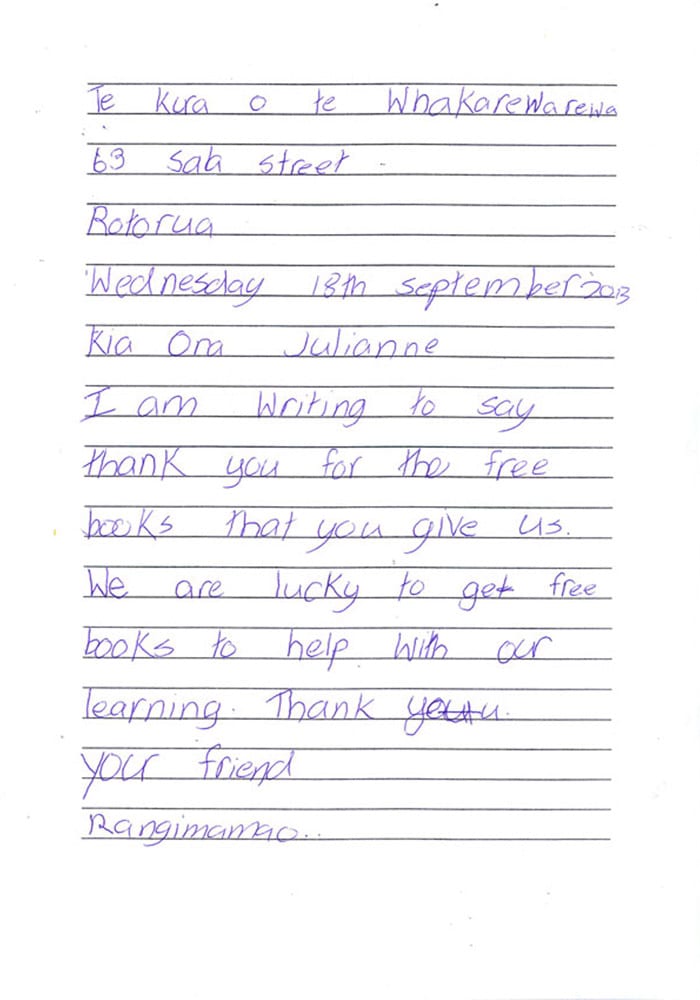 Te Kura o te Whakarewarewa
63 Sala street
Rotorua
Wednesday 18th september 2013
Kia Ora Julianne
I am Writing to say
thank you for the free
books that you give us.
We are lucky to get free
books to help With our
learning. Thank you.
your friend
Rangimamao..